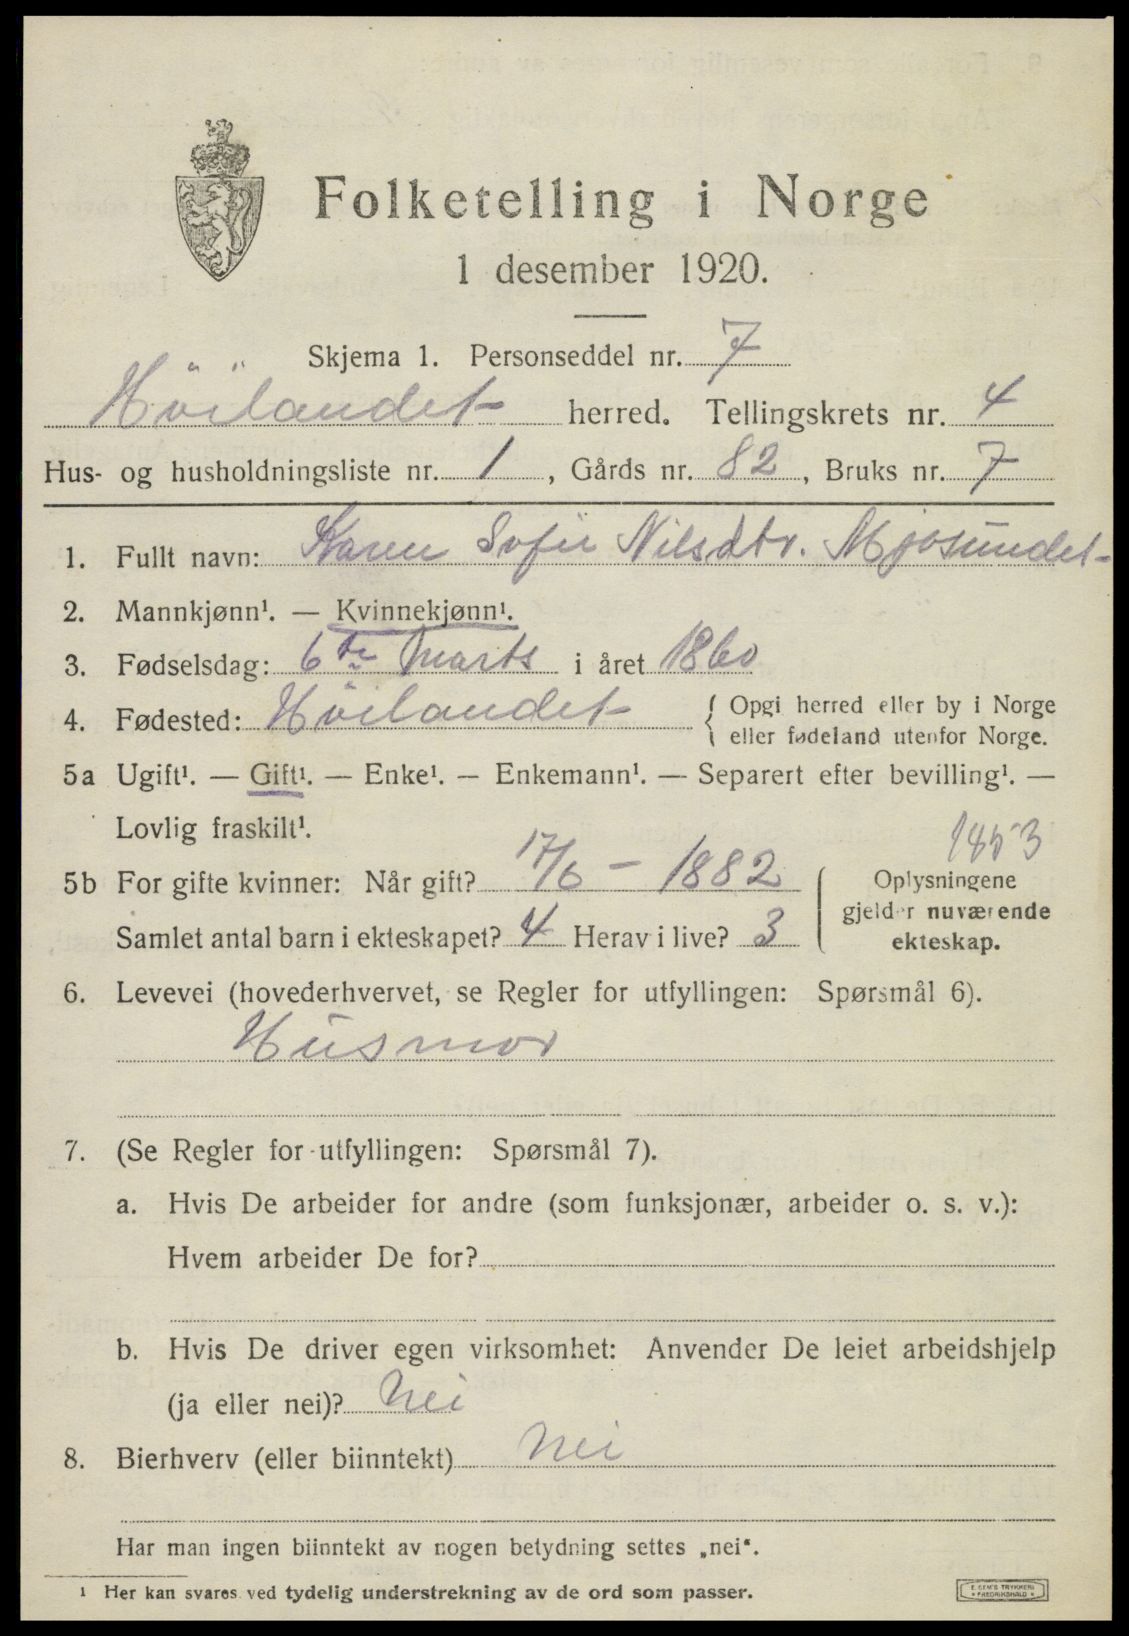 Folketelling i Norge
1 desember 1920.
Skjema 1. Personseddel nr. 7
Höilandet herred. Tellingskrets nr. 4
Hus- og husholdningsliste nr. 1, Gårds nr. 82, Bruks nr. 7
1. Fullt navn: Karen Sofie Nilsdtr. Mjosundet
2. Mannkjønn¹. — Kvinnekjønn¹.
3. Fødselsdag: 6te Marts i året 1860
4. Fødested: Höilandet { Opgi herred eller by i Norge
eller fødeland utenfor Norge.
5a Ugift¹. — Gift¹. — Enke¹. — Enkemann¹. — Separert efter bevilling¹. —
Lovlig fraskilt¹.
1853
5b For gifte kvinner: Når gift? 17/6 – 1882
Samlet antal barn i ekteskapet? 4 Herav i live? 3
Oplysningene
gjelder nuværende
ekteskap.
6. Levevei (hovederhvervet, se Regler for utfyllingen: Spørsmål 6).
Husmor
7. (Se Regler for utfyllingen: Spørsmål 7).
a. Hvis De arbeider for andre (som funksjonær, arbeider o. s. v.):
Hvem arbeider De for?
b. Hvis De driver egen virksomhet: Anvender De leiet arbeidshjelp
(ja eller nei)? Nei
8. Bierhverv (eller biinntekt) Nei
Har man ingen biinntekt av nogen betydning settes „nei“.
¹ Her kan svares ved tydelig understrekning av de ord som passer.
E. SEM'S TRYKKERI
FREDRIKSHALD